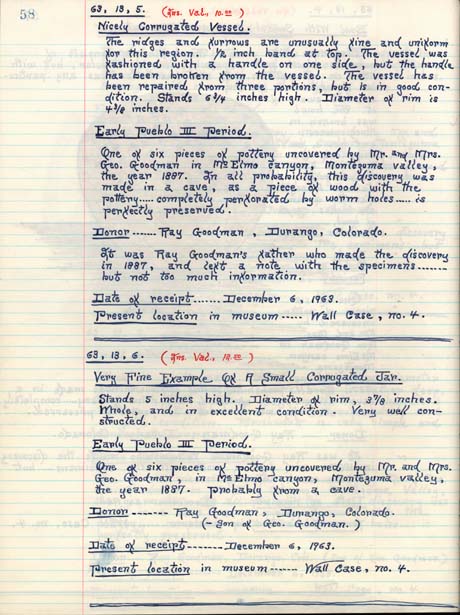 58
63, 13, 5. (Ins. Val., 10.00)
Nicely Corrugated Vessel.
The ridges and furrows are unusually fine and uniform
for this region. 1/2 inch band at top. The vessel was
fashioned with a handle on one side, but the handle
has been broken from the vessel. The vessel has
been repaired from three portions, but is in good con-
dition. Stands 6 3/4 inches high. Diameter of rim is
4 3/8 inches.
Early Pueblo III Period.
One of six pieces of pottery uncovered by Mr. and Mrs.
Geo. Goodman in McElmo canyon, Montezuma valley,
the year 1887. In all probability, this discovery was
made in a cave, as a piece of wood with the
pottery.... completely perforated by worm holes..... is
perfectly preserved.
Donor ------- Ray Goodman, Durango, Colorado.
It was Ray Goodman's father who made the discovery
in 1887, and left a note with the specimens--------
but not too much information.
Date of receipt....... December 6, 1963.
Present location in museum ----- Wall Case, no. 4.
63, 13, 6. (Ins. Val., 12.00)
Very Fine Example Of A Small Corrugated Jar.
Stands 5 inches high. Diameter of rim, 3 7/8 inches.
Whole, and in excellent condition. Very well con-
structed.
Early Pueblo III Period.
One of six pieces of pottery uncovered by Mr. and Mrs.
Geo. Goodman, in McElmo canyon, Montezuma valley,
the year 1887. Probably from a cave.
Donor --------- Ray Goodman, Durango, Colorado.
(- Son of Geo. Goodman.)
Date of receipt-------- December 6, 1963.
Present location in museum ------ Wall Case, no. 4.